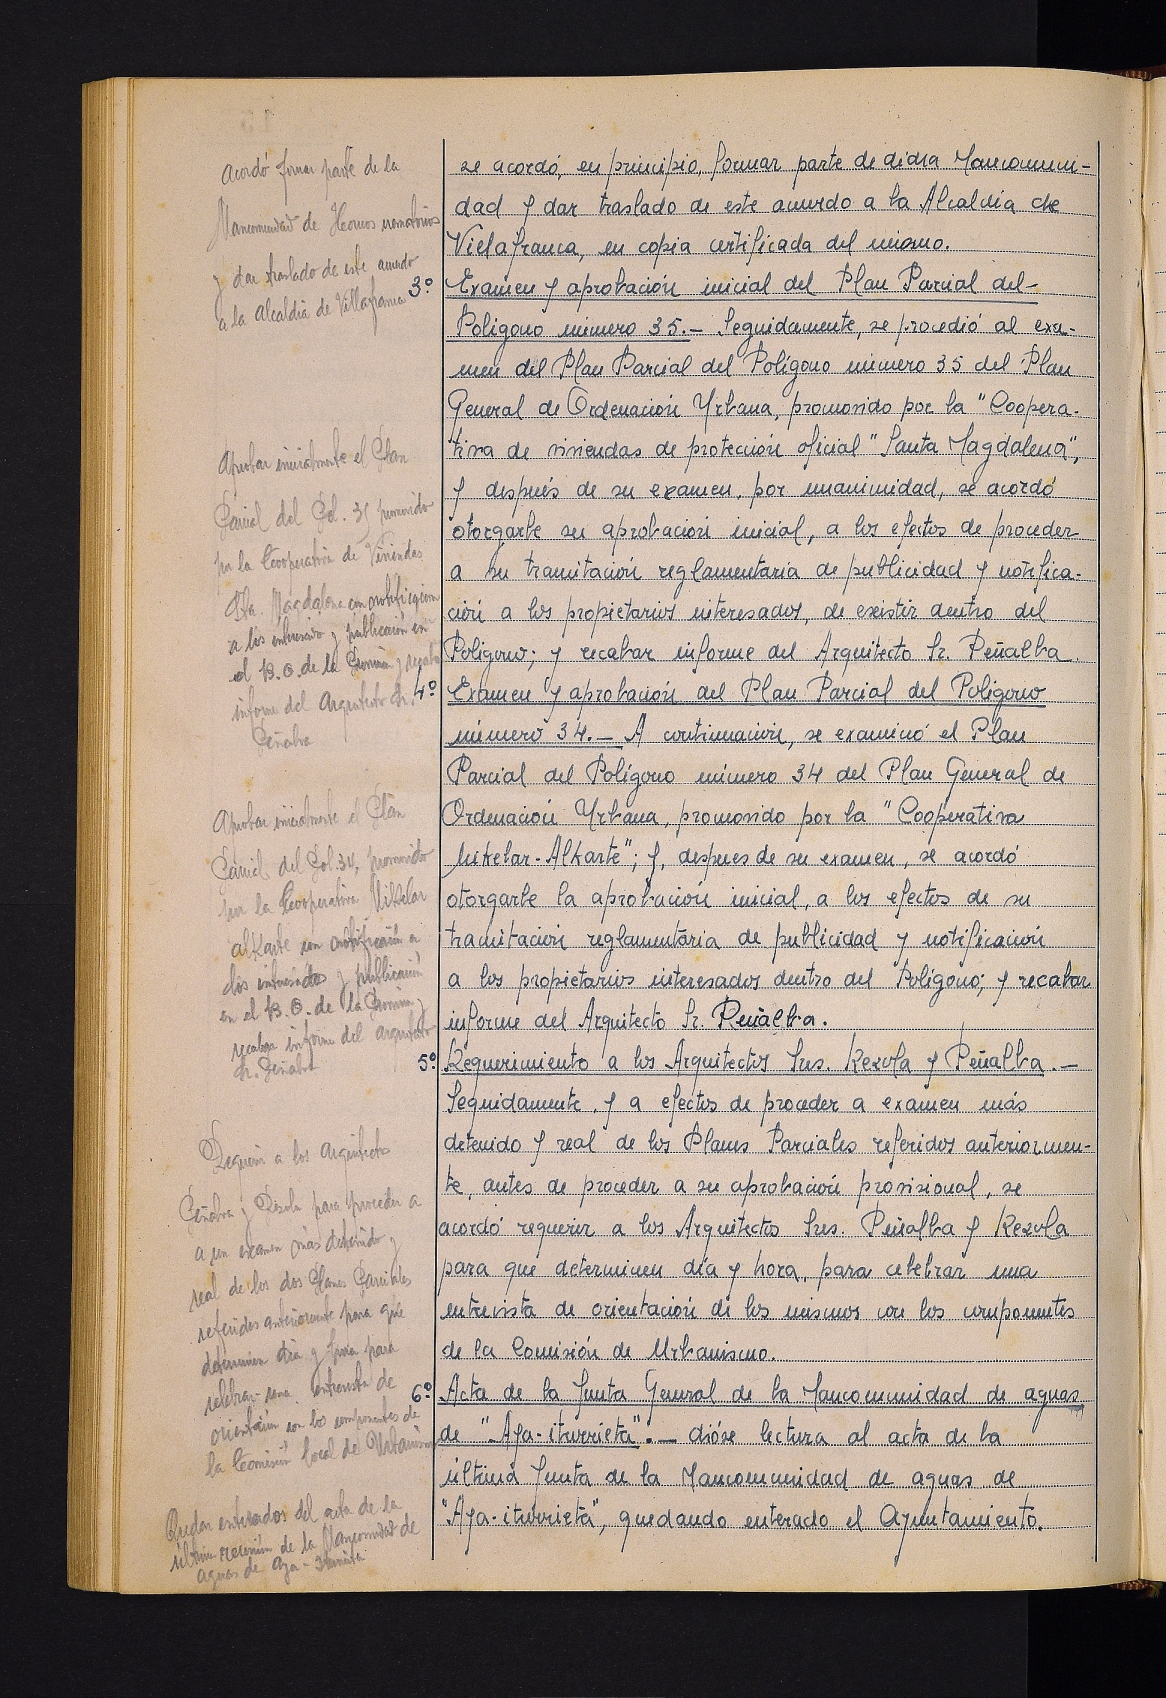 acordó formar parte de la
Mancomunidad de Hornos crematorios
y dar traslado de este acuerdo
a la Alcaldía de Villafranca
se acordó, en principio, formar parte de dicha Mancomuni-
dad y dar traslado de este acuerdo a la Alcaldía de
Villafranca, en copia certificada del mismo.
3º Examen y aprobación inicial del Plan Parcial del-
Polígono número 35.- Seguidamente, se procedió al exa-
men del Plan Parcial del Polígono número 35 del Plan
General de Ordenación Urbana, promovido por la "Coopera-
tiva de viviendas de protección oficial "Santa Magdalena",
y después de su examen, por unanimidad, se acordó
otorgarle su aprobación inicial, a los efectos de proceder
a su tramitación reglamentaria de publicidad y notifica-
ción a los propietarios interesados, de existir dentro del
Polígono; y recabar informe del Arquitecto Sr. Peñalba
Aprobar inicialmente el Plan
Parcial del Pol. 35 promovido
por la Cooperativa de Viviendas
Sta. Magdalena con notificación
a los interesado y publicación en
el B.O. de la Provincia y recabar
informe del Arquitecto Sr.
Peñalba
4º Examen y aprobación del Plan Parcial del Polígono
número 34.- A continuación, se examinó el Plan
Parcial del Polígono número 34 del Plan General de
Ordenación Urbana, promovido por la "Cooperativa
Mikelar-Alkarte"; y, despues de su examen, se acordó
otorgarle la aprobación inicial, a los efectos de su
tramitación reglamentaria de publicidad y notificación
a los propietarios interesados dentro del Polígono; y recabar
informe del Arquitecto Sr. Peñalba.
Aprobar inicialmente el Plan
Parcial del Pol 34, promovido
por la Cooperativa Mikelar
alkarte con notificación a
los interesados y publicación
en el B.O. de la Provincia y
recabar informe del arquitecto
Sr. Peñalba
5º Requerimiento a los Arquitectos Sres. Rezola y Peñalba.-
Seguidamente, y a efectos de proceder a examen más
detenido y real de los Planes Parciales referidos anteriormen-
te, antes de proceder a su aprobación provisional, se
acordó requerir a los Arquitectos Sres. Peñalba y Rezola
para que determinen día y hora, para celebrar una
entrevista de orientación de los mismos con los componentes
de la Comisión de Urbanismo.
Requerir a los Arquitectos
Peñalba y Rezola para proceder a
a un examen más detenido y
real de los dos Planes Parciales
referidos anteriormente para que
determinen día y hora para
celebrar una entrevista de
orientación con los componentes de
la Comisión local de Urbanismo
6º Acta de la Junta General de la Mancomunidad de aguas
de "Aya-iturrieta".- dióse lectura al acta de la
última Junta de la Mancomunidad de aguas de
"Aya-iturrieta", quedando enterado el Ayuntamiento.
Quedan enterados del acta de la
última reunión de la Mancomunidad de
aguas de Aya-Iturrieta